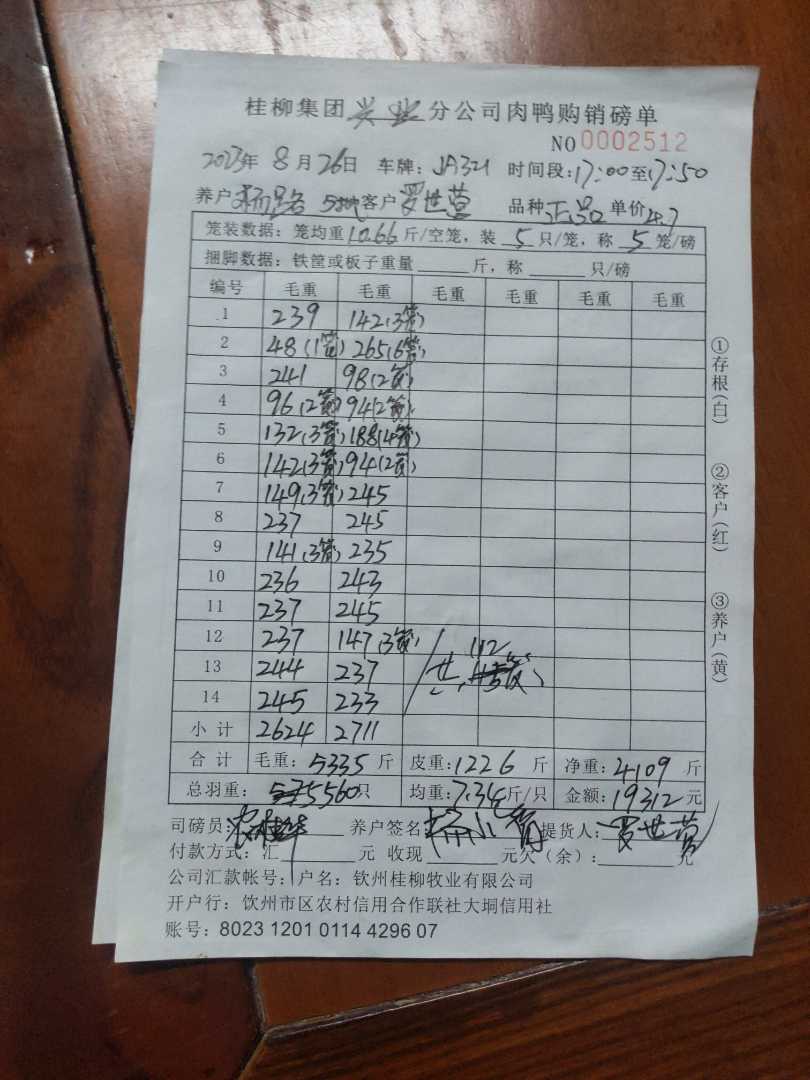 桂柳集团兴业分公司肉鸭购销磅单
NO 0002512
2023年8月26日 车牌：JA321 时间段：17:00至17:50
养户 杨 客户 罗世营 品种 正品 单价4.7
笼装数据：笼均重10.66斤/空笼，装5只/笼，称5笼/磅
捆脚数据：铁筐或板子重量______斤，称______只/磅
编号 毛重 毛重 毛重 毛重 毛重 毛重
1 239 142(3笼)
2 48(1笼) 265(6笼)
3 241 98(2笼)
4 96(2笼) 94(2笼)
5 132(3笼) 188(4笼)
6 142(3笼) 94(2笼)
7 149(3笼) 245
8 237 245
9 141(3笼) 235
10 236 243
11 237 245
12 237 147(3笼)
13 244 237 共 112
14 245 233
小计 2624 2711
合计 毛重：5335斤 皮重：1226斤 净重：4109斤
总羽重：560只 均重：7.34斤/只 金额：19312元
司磅员： 养户签名 提货人：罗世营
付款方式：汇______元 收现______元欠（余）：______元
公司汇款帐号：户名：钦州桂柳牧业有限公司
开户行：饮州市区农村信用合作联社大垌信用社
账号：8023 1201 0114 4296 07
①存根（白）
②客户（红）
③养户（黄）